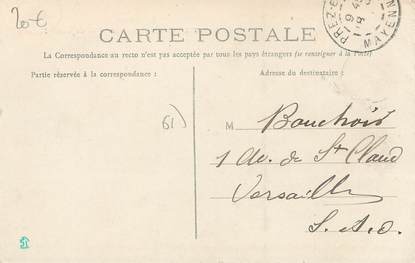 20 €
CARTE POSTALE
PREZ-E
MAYENNE
9 45
La Correspondance au recto n'est pas acceptée par tous les pays étrangers (se renseigner à la Poste)
Partie réservée à la correspondance :
Adresse du destinataire :
61)
M Bouchois
1 Av. de St Claud
Versailles
S. et O.